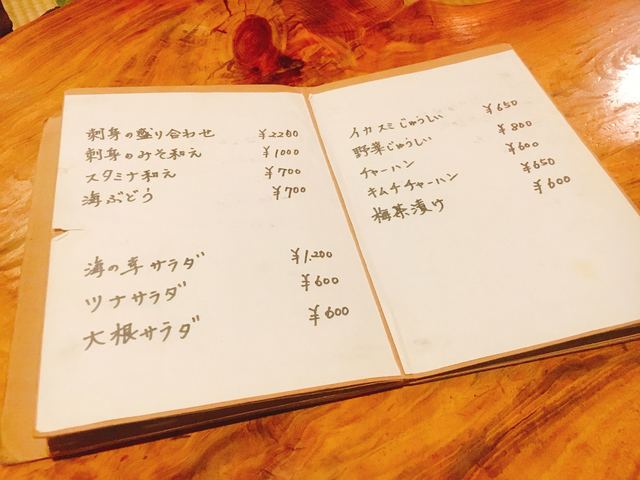 刺身の盛り合わせ ¥2200
刺身のみそ和え ¥1000
スタミナ和え ¥700
海ぶどう ¥700
海の幸サラダ ¥1.200
ツナサラダ ¥600
大根サラダ ¥600
イカスミじゅうしい ¥650
野菜じゅうしい ¥800
チャーハン ¥600
キムチチャーハン ¥650
梅茶漬け ¥600